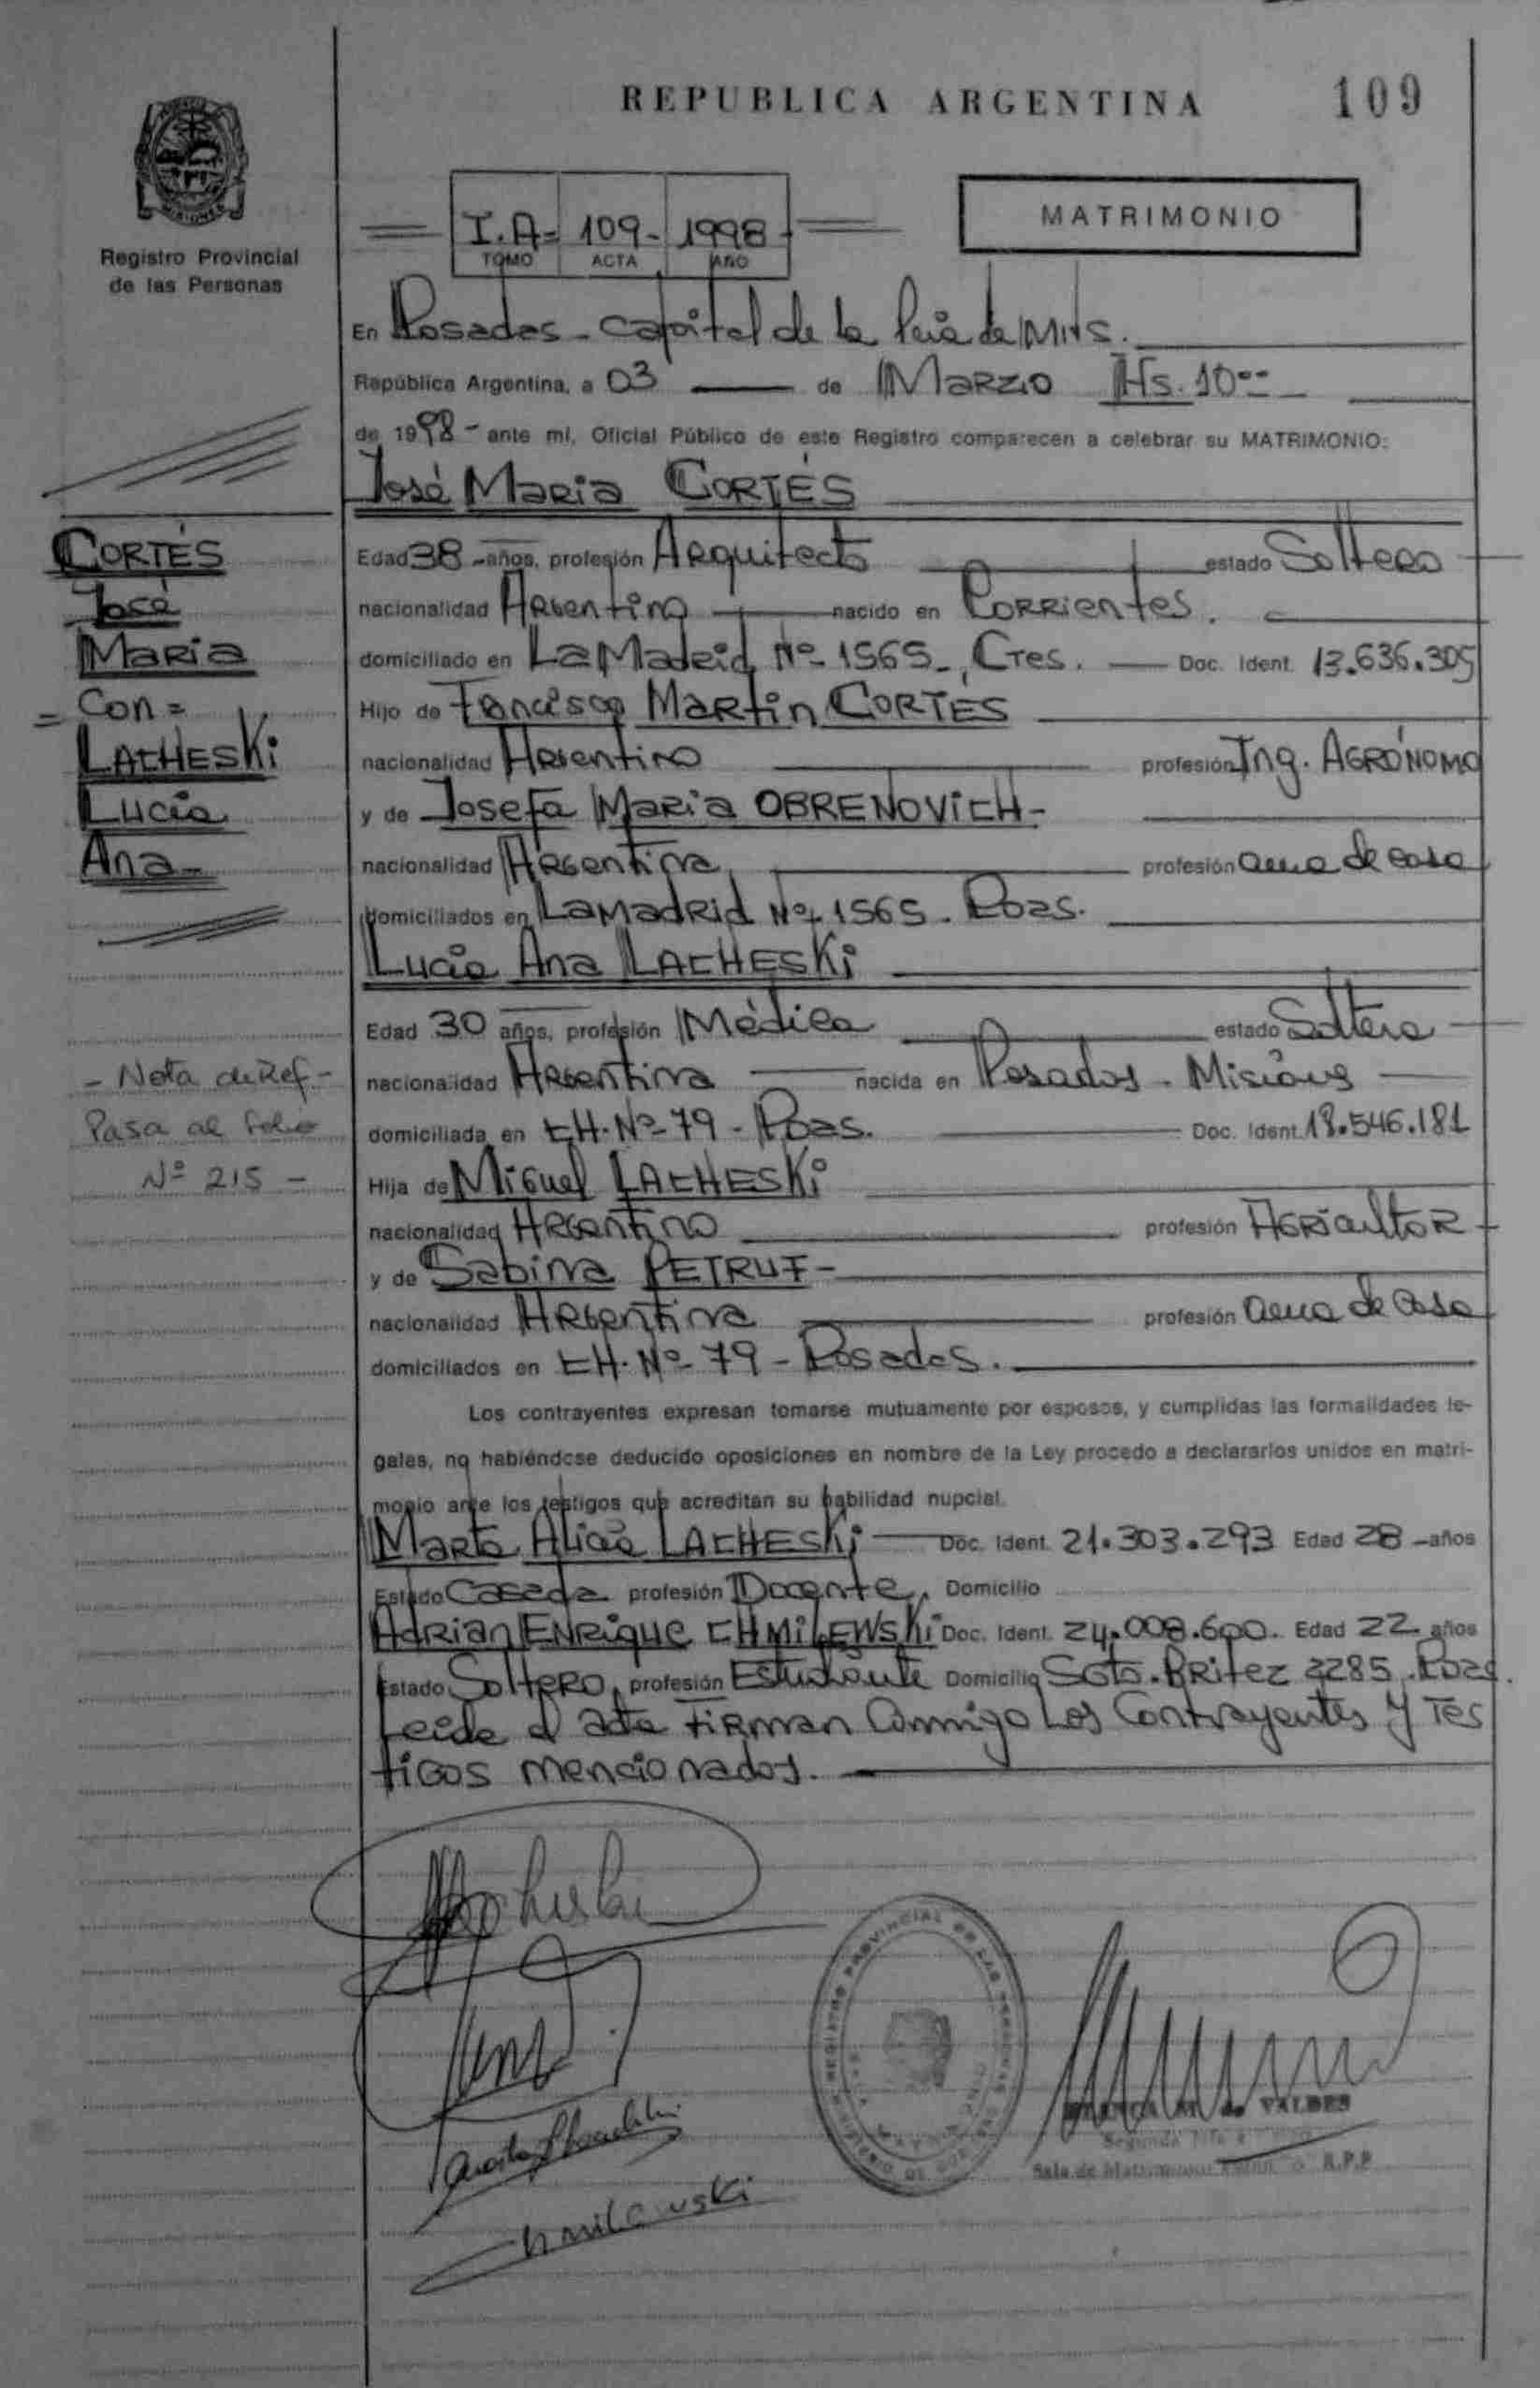 REPUBLICA ARGENTINA 109
MISIONES
Registro Provincial
de las Personas
I.A= 109- 1998-
TOMO ACTA AÑO
MATRIMONIO
En Posadas - capital de la Pcia de Mnes.
República Argentina, a 03 de Marzo Hs. 10
de 1998 - ante mí, Oficial Público de este Registro comparecen a celebrar su MATRIMONIO:
José Maria CORTÉS
CORTÉS
José
Maria
= Con =
LACHESKi
Lucia
Ana-
Edad 38 - años, profesión Arquitecto estado Soltero
nacionalidad Argentina nacido en Corrientes.
domiciliado en La Madrid Nº 1565-, Ctes. Doc. Ident. 13.636.305
Hijo de Francisco Martin CORTÉS
nacionalidad Argentino profesión Ing. AGRÓNOMO
y de Josefa Maria OBRENOVICH-
nacionalidad Argentina profesión ama de casa
domiciliados en LaMadrid Nº 1565 - Pdas.
Lucia Ana LACHESKi
Edad 30 años, profesión Médica estado Soltera
nacionalidad Argentina nacida en Posadas - Misiones
domiciliada en CH. Nº 79 - Pdas. Doc. Ident. 18.546.181
- Nota de Ref -
Pasa al folio
Nº 215 -
Hija de Miguel LACHESKi
nacionalidad Argentino profesión Agricultor
y de Sabina PETRUF-
nacionalidad Argentina profesión ama de casa
domiciliados en CH. Nº 79 - Posadas.
Los contrayentes expresan tomarse mutuamente por esposos, y cumplidas las formalidades le-
gales, no habiéndose deducido oposiciones en nombre de la Ley procedo a declararlos unidos en matri-
monio ante los testigos que acreditan su habilidad nupcial.
Marta Alicia LACHESKi Doc. Ident. 21.303.293 Edad 28 - años
Estado Casada profesión Docente, Domicilio
Adrian Enrique CHMiLEWSKi Doc. Ident. 24.008.600. Edad 22 años
Estado Soltero, profesión Estudiante Domicilio Sgto. Britez 2285. Pdas.
Leida el acta firman Conmigo Los Contrayentes y Tes
tigos mencionados.
Chmilewski
REGISTRO PROVINCIAL DE LAS PERSONAS
de VALDES
Segunda
Sala de R.P.P